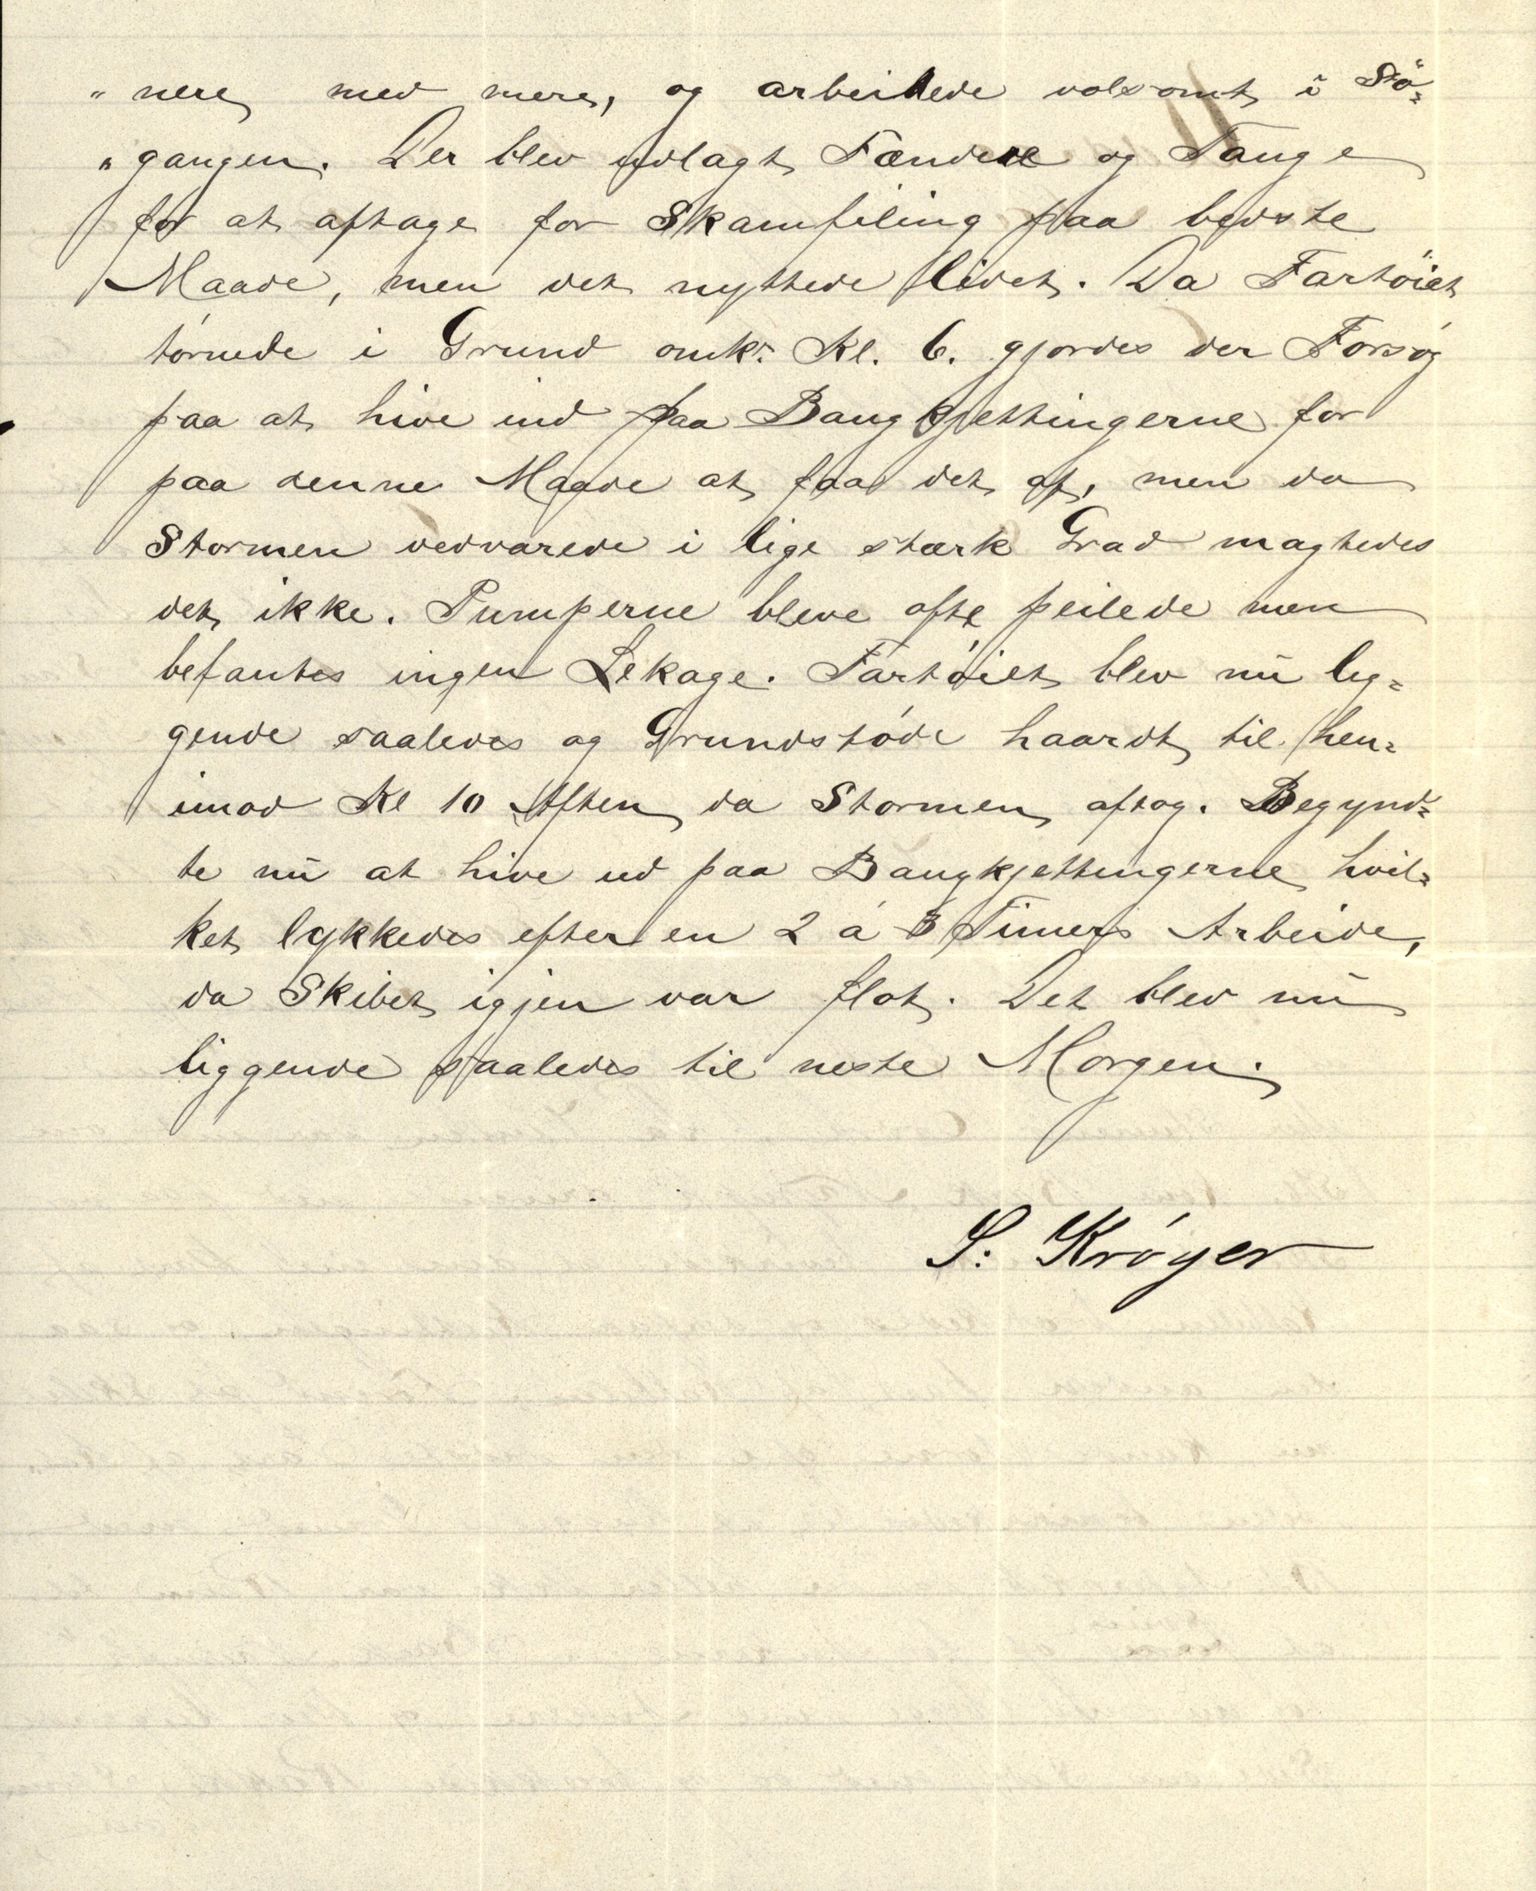 „ nere, med mere, og arbeidede volsomt i Sö=
„ gangen. Der blev udlagt Fendere og Tauge
for at aftage for Skamfiling paa bedste
Maade, men det nyttede lidet. Da Fartöiet
tørnede i Grund omkr. Kl. 6. gjordes der Forsøg
paa at hive ind paa Baugkjettingerne for
paa denne Maade at faa det af, men da
Stormen vedvarede i lige stærk Grad magtedes
det ikke. Pumperne bleve ofte peilede men
befantes ingen Lekage. Fartøiet blev nu lig=
gende saaledes og Grundstøde haardt til hen=
imod Kl 10 Aften, da Stormen aftog. Begynd=
te nu at hive ud paa Baugkjettingerne, hvil=
ket lykkedes efter en 2 á 3 Timers Arbeide,
da Skibet igjen var flot. Det blev nu
liggende saaledes til neste Morgen.
S: Krøyer